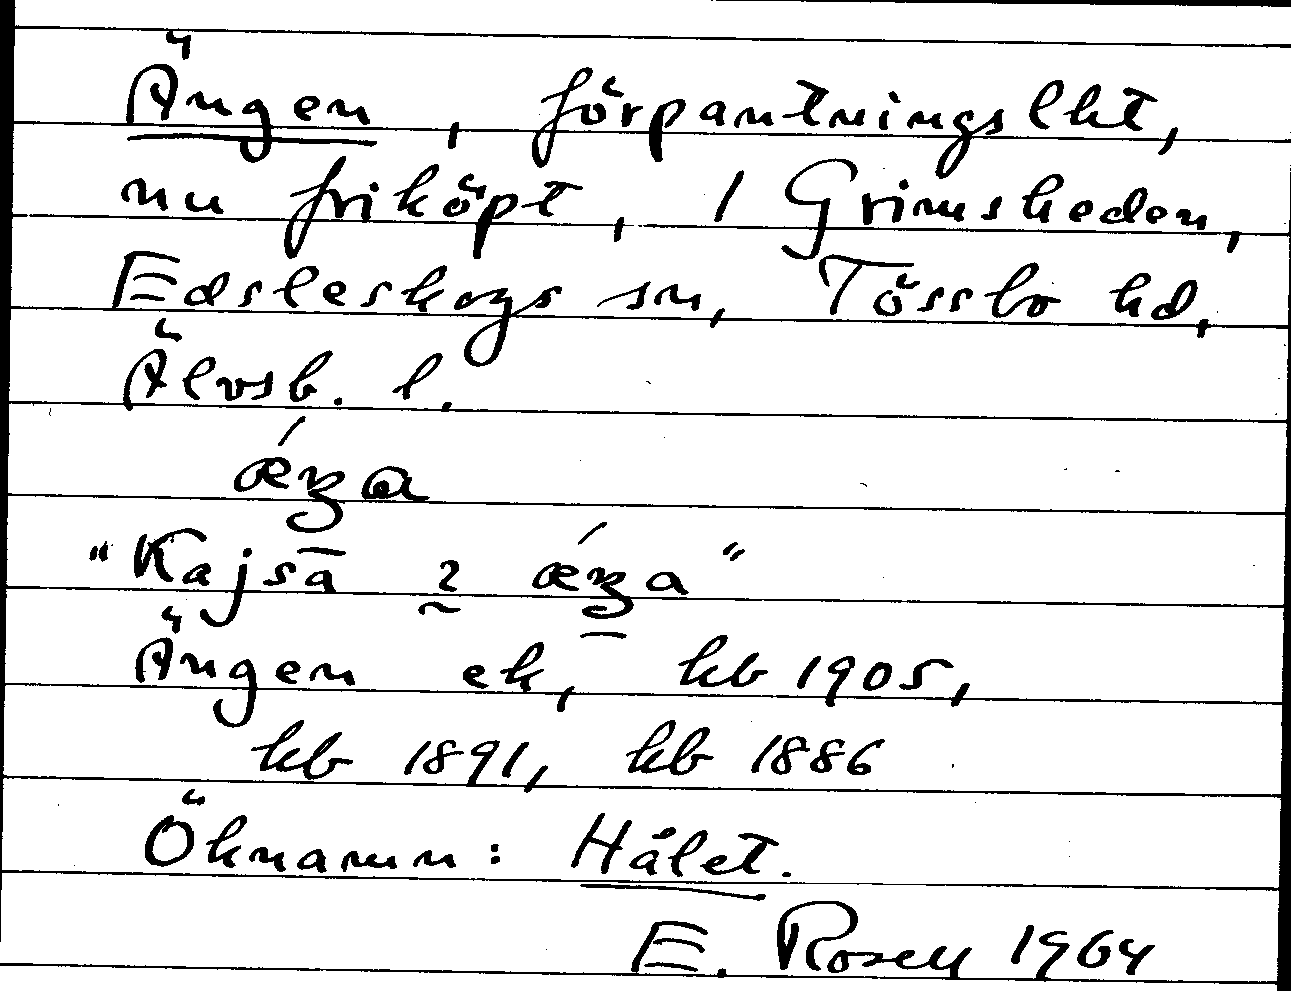 Ängen, förpantningslht,
nu friköpt, 1 Grimsheden,
Edsleskogs sn, Tössbo hd,
Älvsb. l.
"Kajsa
Ängen ek, kb 1905,
kb 1891, kb 1886
Öknamn: Hålet.
E. Rosell 1964